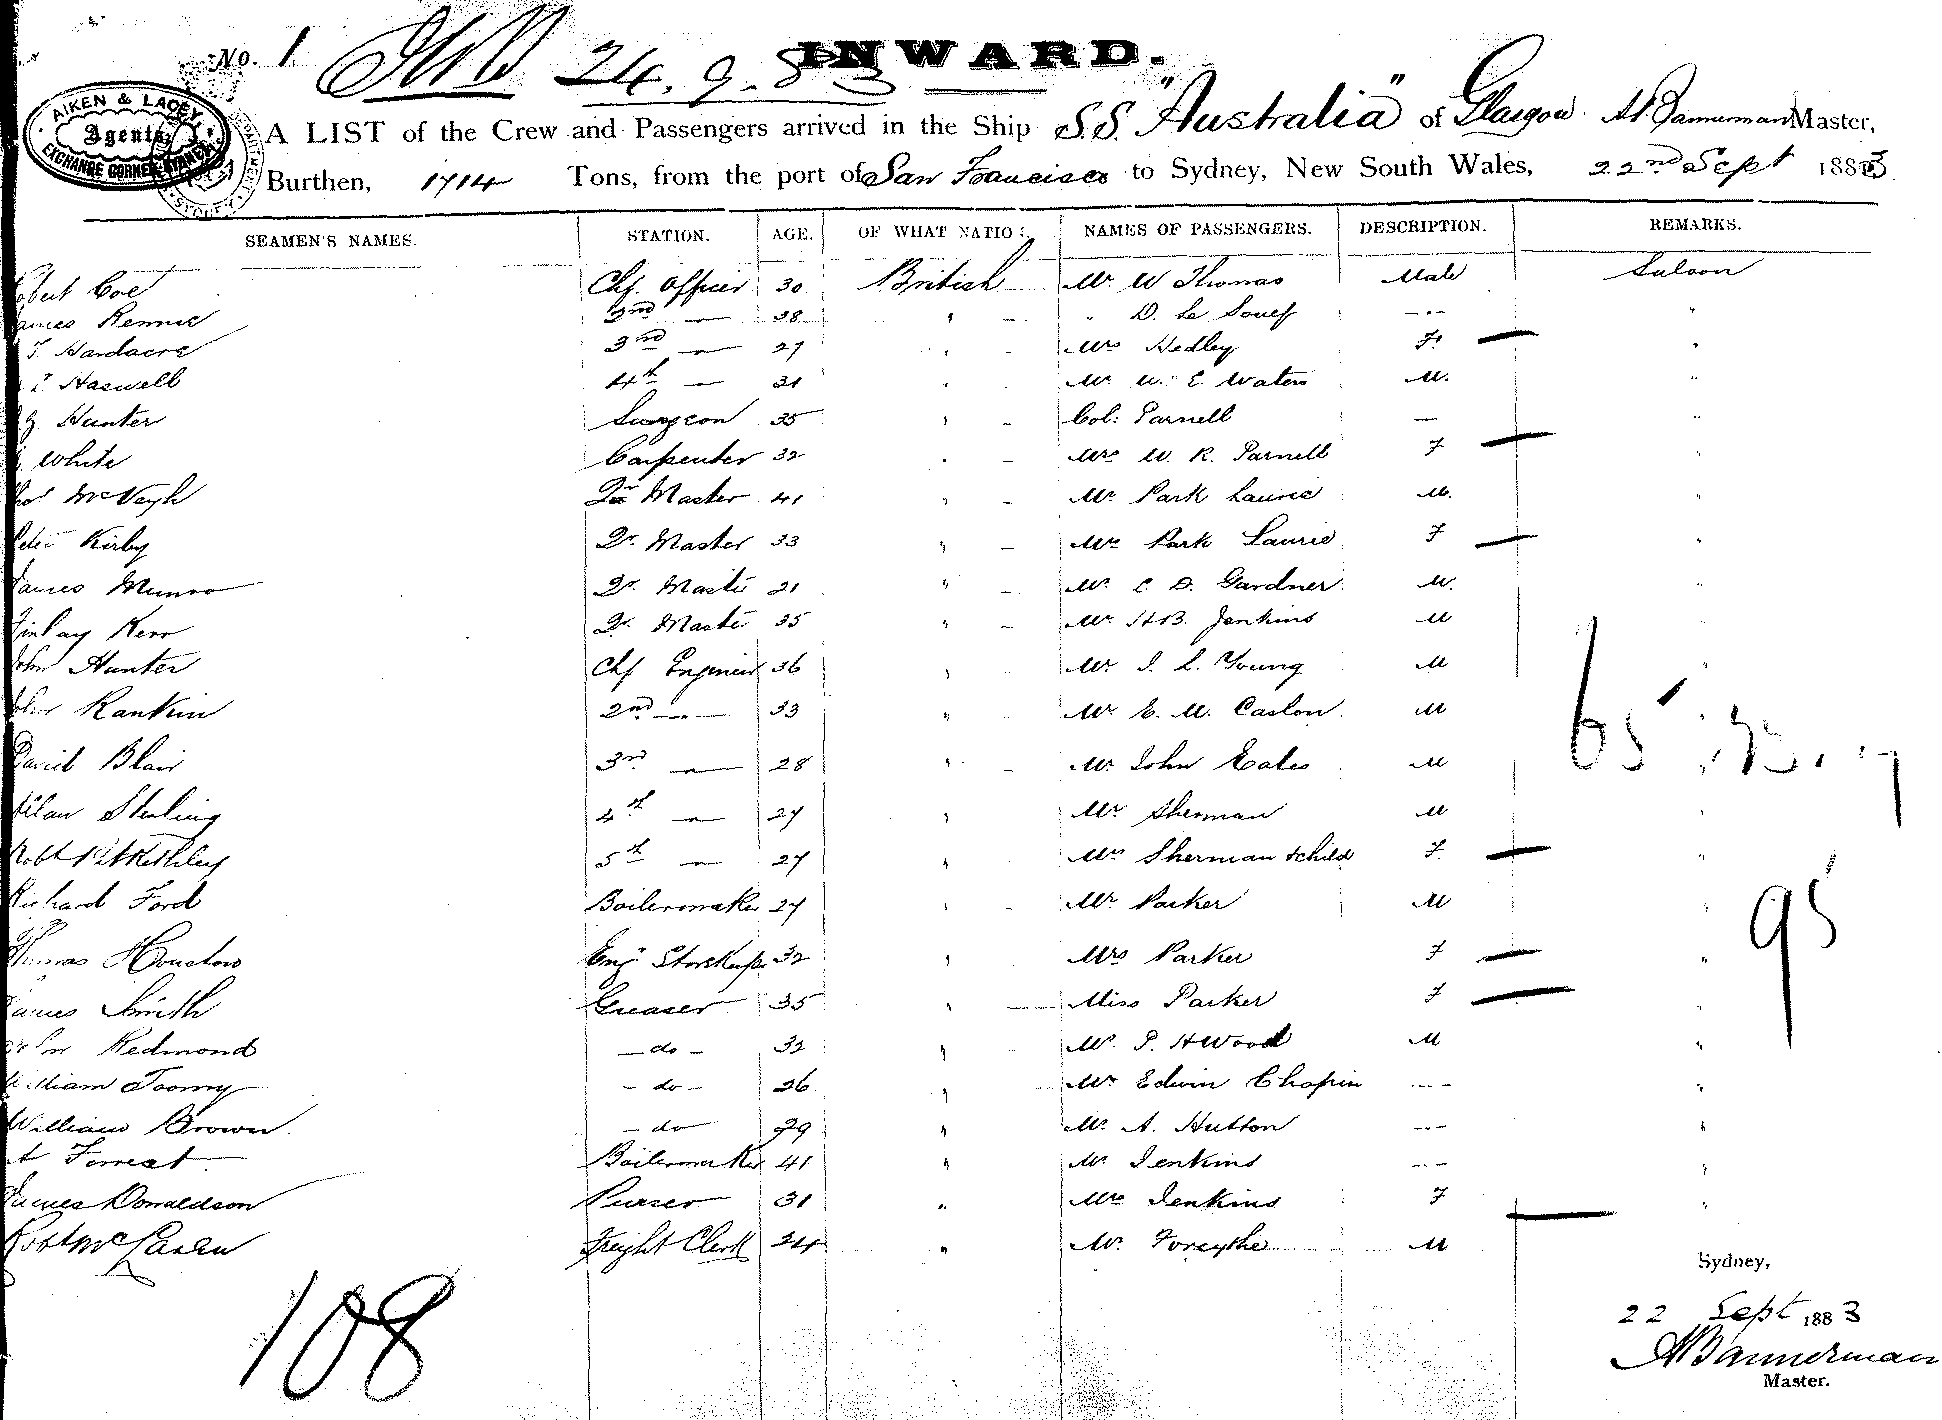 No. 1 24. 9. 83 INWARD.
AIKEN & LACEY
Agents
EXCHANGE CORNER SYDNEY
A LIST of the Crew and Passengers arrived in the Ship S.S. "Australia" of Glasgow. Bannerman Master,
Burthen, 1714 Tons, from the port of San Francisco to Sydney, New South Wales, 22nd Sept 1883
SEAMEN'S NAMES. STATION. AGE. OF WHAT NATION. NAMES OF PASSENGERS. DESCRIPTION. REMARKS.
obert Coe Chf. Officer 30 British Mr W Thomas Male Saloon
ames Rennie 2nd — 38 " — " D. Le Souef — " — "
T. Hardacre 3rd — 27 " - Mrs Hedley F. "
Haswell 4th — 31 " - Mr W. E. Waters M. "
Hunter Surgeon 35 " - Col: Parnell — "
White Carpenter 32 " - Mrs W. R. Parnell F "
McVeigh Qr Master 41 " - Mr Park Laurie M. "
eter Kirby Qr. Master 33 " - Mrs Park Laurie F "
James Munro Qr. Master 21 " - Mr. C. D. Gardner M. "
Finlay Kerr Qr. Master 35 " - Mr H.B. Jenkins M
John Hunter Chf Engineer 36 " Mr. J. L. Young M "
John Rankin 2nd — " — 33 " Mr E. M. Caslon. M
65
David Blair 3rd — " — 28 " - Mr John Eales M
Allan Sterling 4th — " — 27 " Mr Sherman M
Robt 5th — " — 27 " Mrs Sherman & child F "
Richard Ford Boilermaker 27 " - Mr Parker M "
95
Thomas Houston Engr Storekeeper 32 " Mrs Parker F "
James Smith Greaser 35 " — Miss Parker F "
Redmond — do — 32 " Mr. P. H Wood M "
William Toomy — do — 26 " Mr Edwin Chapin — " — "
William Brown. — do — 29 " Mr. A. Hutton — " — "
A Forrest Boilermaker 41 " Mr Jenkins — " — "
James Donaldson Purser 31 " Mrs Jenkins F "
Robt McLaren Freight Clerk 24 " Mr. Forsythe M
Sydney,
108
22 Sept 1883
Bannerman
Master.